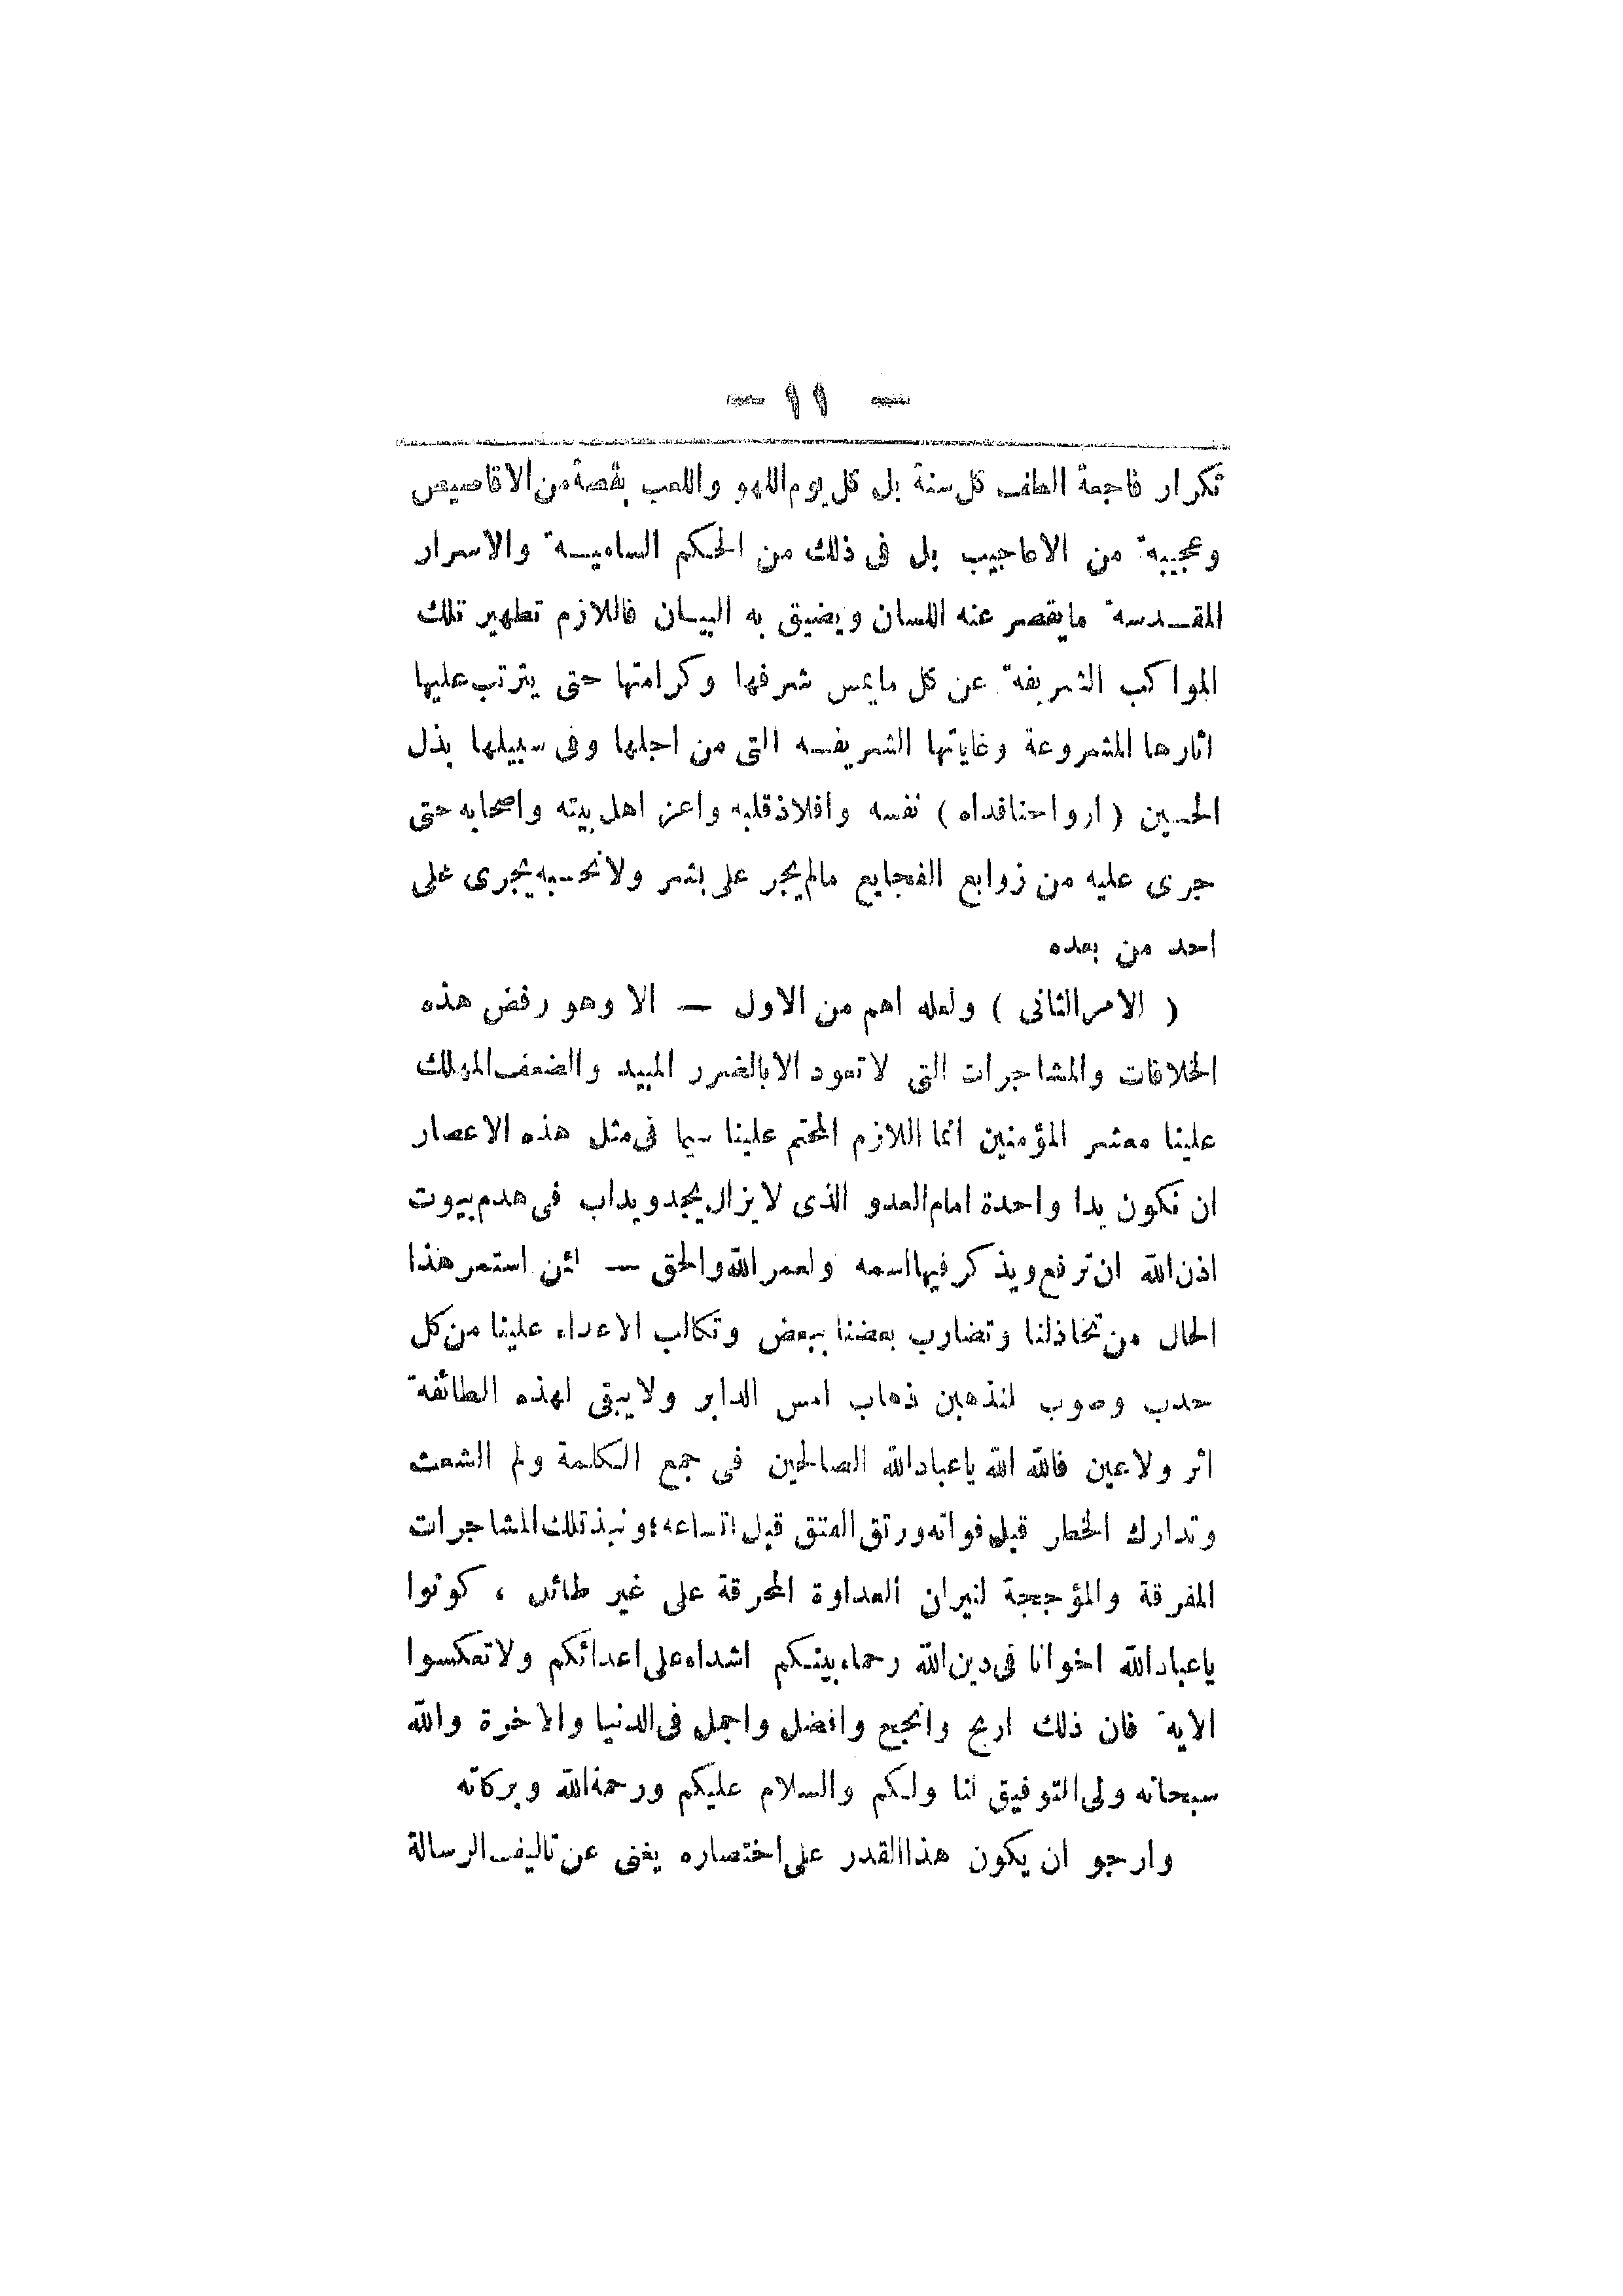 — ١١ —
تكرار فاجعة الطف كل سنة بل كل يوم اللهو واللعب بقصة من الاقاصيص
وعجيبة من الاعاجيب بل فى ذلك من الحكم السامية والاسرار
المقدسة ما يقصر عنه اللسان ويضيق به البيان فاللازم تطهير تلك
المواكب الشريفة عن كل ما يمس شرفها وكرامتها حتى يترتب عليها
اثارها المشروعة وغاياتها الشريفه التى من اجلها وفى سبيلها بذل
الحسين ( ارواحنا فداه ) نفسه وافلاذ قلبه واعز اهل بيته واصحابه حتى
جرى عليه من زوابع الفجايع مالم يجر على بشر ولا نحسبه يجرى على
احد من بعده
( الامر الثانى ) ولعله اهم من الاول — الا وهو رفض هذه
الخلافات والمشاجرات التى لا تعود الا بالضرر المبيد والضعف المهلك
علينا معشر المؤمنين انما اللازم المحتم علينا سيما فى مثل هذه الاعصار
ان نكون يدا واحدة امام العدو الذى لا يزال يجد ويداب فى هدم بيوت
اذن الله ان ترفع ويذكر فيها اسمه ولعمر الله والحق — لئن استمر هذا
الحال من تخاذلنا وتضارب بعضنا ببعض وتكالب الاعداء علينا من كل
حدب وصوب لنذهبن ذهاب امس الدابر ولا يبقى لهذه الطائفة
اثر ولا عين فالله الله يا عباد الله الصالحين فى جمع الكلمة ولم الشعث
وتدارك الخطر قبل فواته ورتق الفتق قبل اتساعه؛ ونبذ تلك المشاجرات
المفرقة والمؤججة لنيران العداوة المحرقة على غير طائل ، كونوا
يا عباد الله اخوانا فى دين الله رحماء بينكم اشداء على اعدائكم ولا تعكسوا
الاية فان ذلك اربح وانجع وافضل واجمل فى الدنيا والاخرة والله
سبحانه ولى التوفيق لنا ولكم والسلام عليكم ورحمة الله وبركاته
وارجو ان يكون هذا القدر على اختصاره يغنى عن تاليف الرسالة